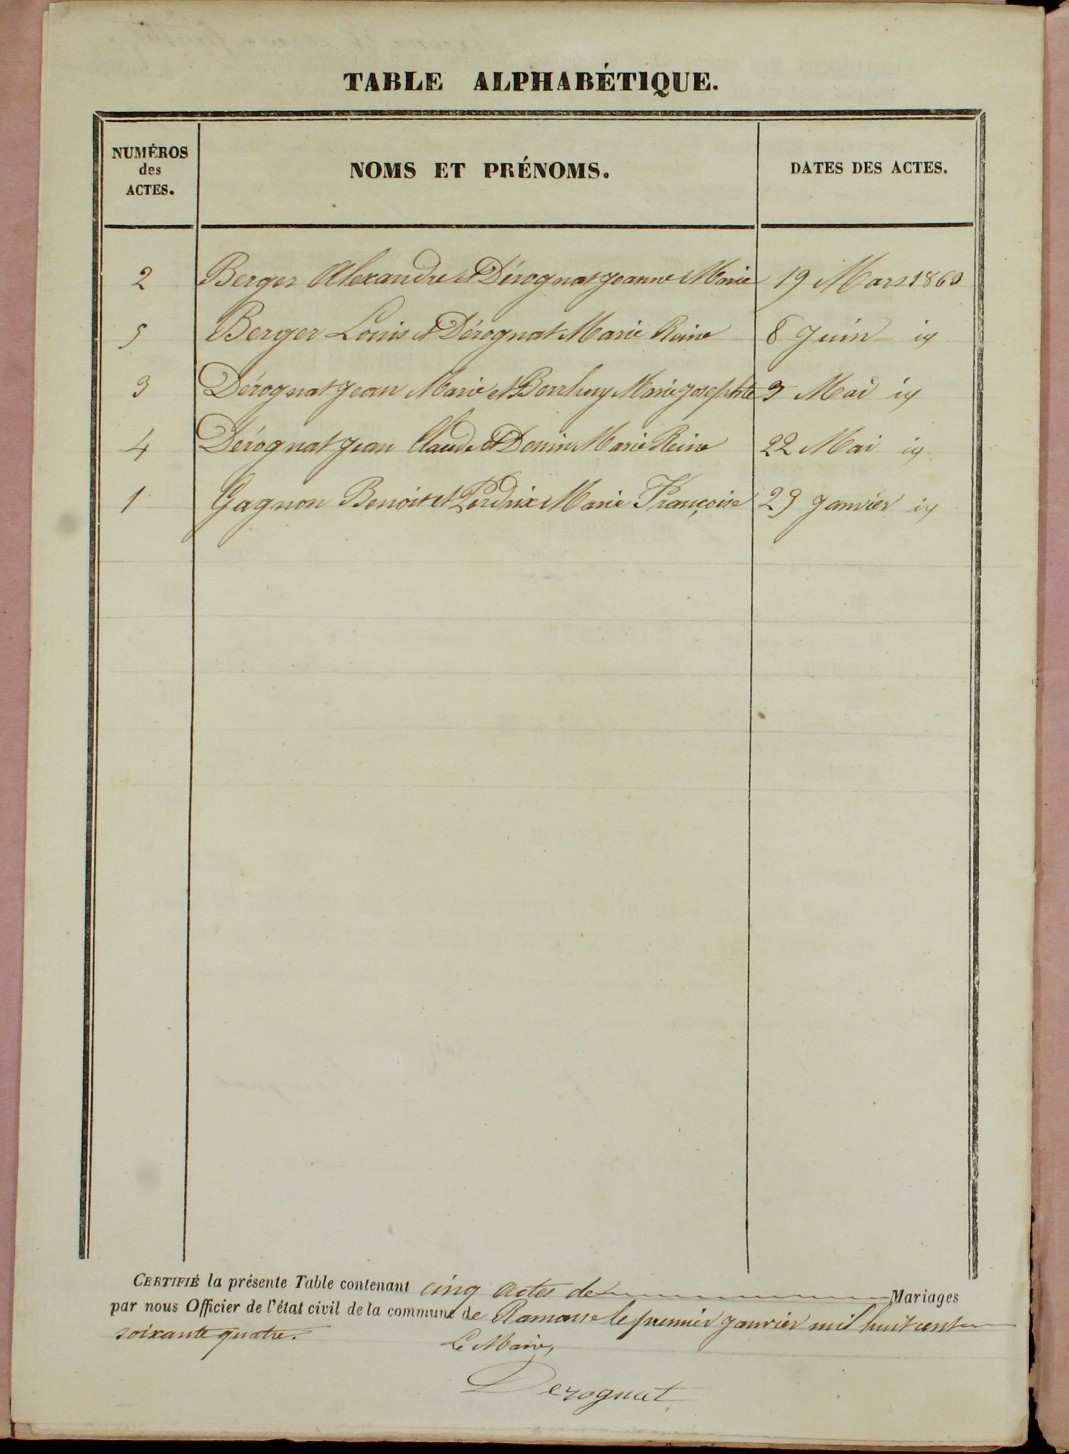 TABLE ALPHABÉTIQUE.
NUMÉROS
des
ACTES.
NOMS ET PRÉNOMS.
DATES DES ACTES.
2 Berger Alexandre et Dérognat Jeanne Marie 19 Mars 1860
5 Berger Louis et Dérognat Marie Reine 8 Juin id
3 Dérognat Jean Marie et Marie Josephte 3 Mai id
4 Dérognat Jean Claude et Marie Reine 22 Mai id
1 Gagnon Benoit et Perdrix Marie Françoise 29 Janvier id
CERTIFIÉ la présente Table contenant cinq actes de Mariages
par nous Officier de l'état civil de la commune de Ramasse le premier janvier mil huit cent
soixante quatre.
Le Maire,
Derognat